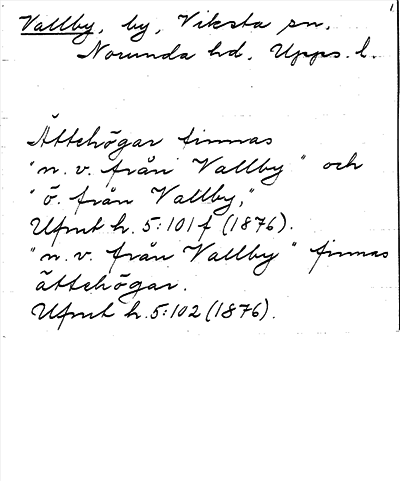 Vallby, by, Viksta sn,
Norunda hd, Upps. l.
Ättehögar finnas
"n. v. från Vallby" och
"ö. från Vallby,"
Ufmt h. 5:101 f (1876).
"n. v. från Vallby" finnas
ättehögar.
Ufmt h. 5:102 (1876).